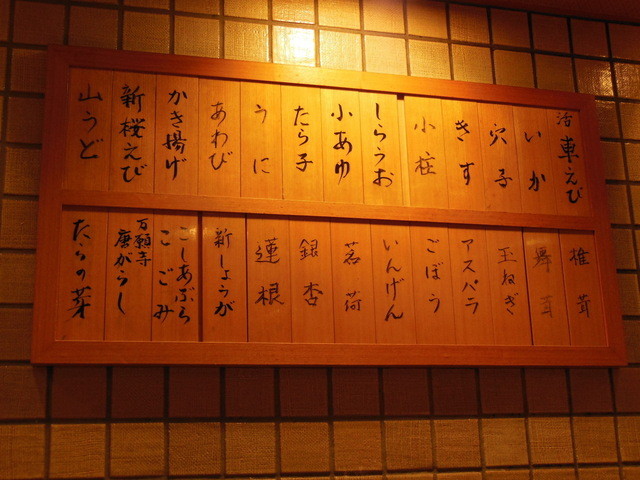 活 車えび
いか
穴子
きす
小柱
しらうお
小あゆ
たら子
うに
あわび
かき揚げ
新桜えび
山うど
椎茸
舞茸
玉ねぎ
アスパラ
ごぼう
いんげん
茗荷
銀杏
蓮根
新しょうが
こしあぶら
こごみ
万願寺
唐がらし
たらの芽